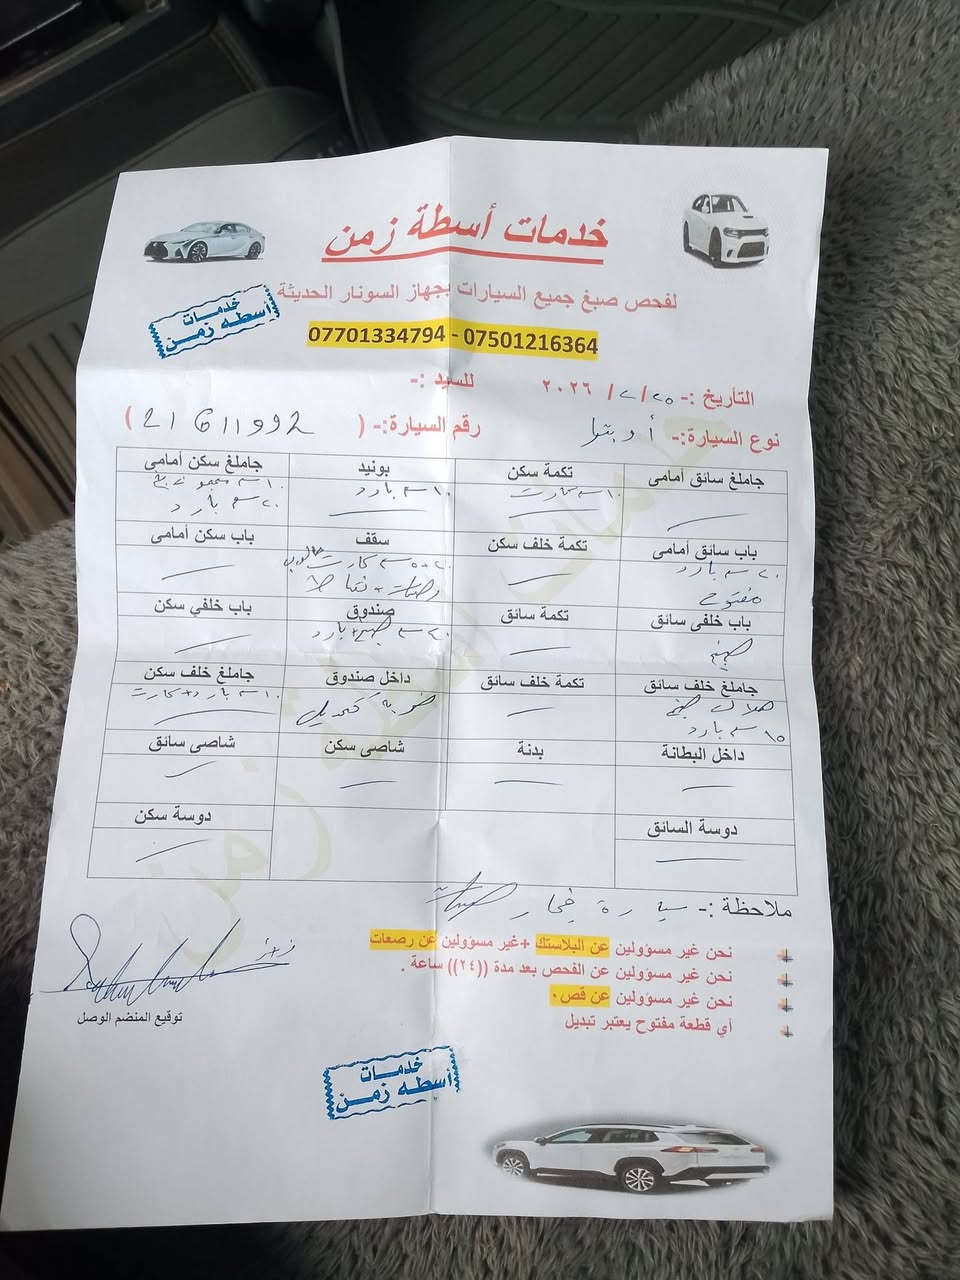 خدمات أسطة زمن
لفحص صبغ جميع السيارات بجهاز السونار الحديثة
خدمات
أسطه زمن
07701334794 - 07501216364
التأريخ :- ٢٠٢٦ / ٢ / ٢٥ للسيد :-
نوع السيارة:- أوبترا رقم السيارة:- ( 21611992 )
جاملغ سائق أمامى تكمة سكن بونيد جاملغ سكن أمامى
١٠ سم كارت ١٠ سم بارد ١٠ سم
٢٠ سم بارد
باب سائق أمامى تكمة خلف سكن سقف باب سكن أمامى
٢٠ سم بارد
مفتوح
باب خلفي سائق تكمة سائق صندوق باب خلفي سكن
صبغ ٢٠ سم صبغ + بارد
جاملغ خلف سائق تكمة خلف سائق داخل صندوق جاملغ خلف سكن
هلال صبغ ضربة كنديل ١٠ سم بارد + كارت
١٥ سم بارد
داخل البطانة بدنة شاصى سكن شاصى سائق
دوسة السائق دوسة سكن
ملاحظة :- سيارة
نحن غير مسؤولين عن البلاستك +غير مسؤولين عن رصعات
نحن غير مسؤولين عن الفحص بعد مدة ((٢٤)) ساعة .
نحن غير مسؤولين عن قص٠
أي قطعة مفتوح يعتبر تبديل
توقيع المنضم الوصل
خدمات
أسطه زمن